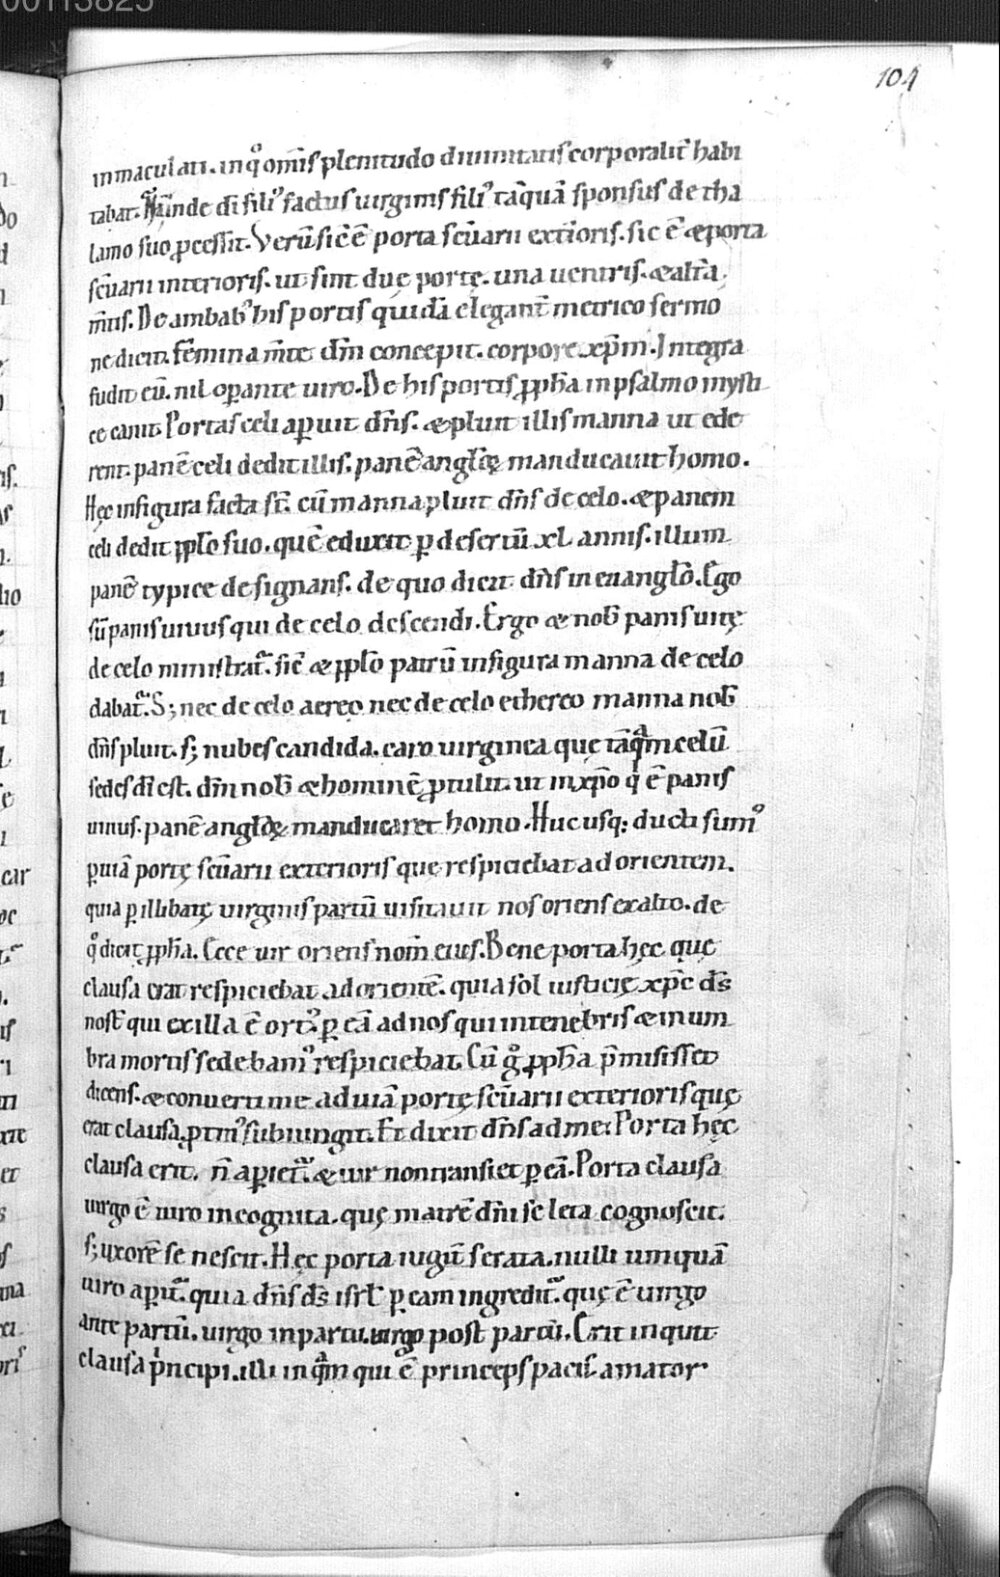 00113825
104
inmaculati. in qͦ om̅s plenitudo diuinitatis corporalit̅ habi
tabat. H̅inde di̅ fili᾽ factus uirginis fili᾽ ta̅qua̅ sponsus de tha
lamo suo ꝓcessit. Veru̅ sic̅ e̅ porta sc̅uarii exterioris. sic e̅ & porta
sc̅uarii interioris. ut sint duę portę. una uentris. & alt̅a
m̅tis. De ambab᾽ his portis quida̅ elegant̅ metrico sermo
ne dicit. fe̅mina m̅te dm̅ concepit. corpore xp̅m. Integra
fudit eu̅. nil oꝑante uiro. De his portis ꝓph̅a in psalmo mysti
ce canit. Portas celi aꝑuit dn̅s. & pluit illis manna ut ede
rent. pane̅ celi dedit illis. pane̅ anglo̅ꝝ manducauit homo.
Hęc in figura facta st̅. cu̅ manna pluit dn̅s de celo. & panem
celi dedit ppl̅o suo. que̅ eduxit ꝑ desertu̅ xl annis. illum
pane̅ typice designans. de quo dicit dn̅s in euangl̅o. Ego
su̅ panis uiuus qui de celo descendi. Ergo & nob̅ panis uitę
de celo ministrat᷒. sic̅ & ppl̅o patru̅ in figura manna de celo
dabat᷒. S; nec de celo aereo nec de celo ethereo manna nob̅
dn̅s pluit. s; nubes candida. caro uirginea quę ta̅qͣm celu̅
sedes di̅ est. dm̅ nob̅ & homine̅ ꝓtulit. ut in xp̅o qͥ e̅ panis
uiuus. pane̅ anglo̅ꝝ manducaret homo. Huc usq; ducti sum᾽
ꝑ uia̅ portę sc̅uarii exterioris que respiciebat ad orientem.
quia ꝑ illibatę uirginis partu̅ uisitauit nos oriens ex alto. de
qͦ dicit ꝓph̅a. Ecce uir oriens nom̅ eius. Bene porta hęc quę
clausa erat respiciebat ad oriente̅. quia sol iusticię xp̅c ds̅
nost̅ qui ex illa e̅ ort᾽. ꝑ ea̅ ad nos qui in tenebris & in um
bra mortis sedebam᾽ respiciebat. Cu̅ gͦ ꝓph̅a p̅misisset
dicens. & conuerti me ad uia̅ portę sc̅uarii exterioris quę
erat clausa. ꝓtin᾽ subiungit. Et dixit dn̅s ad me. Porta hęc
clausa erit. n̅ aꝑiet᷒. & uir non transiet ꝑ ea̅. Porta clausa
uirgo e̅ uiro incognita. quę matre̅ dn̅i se leta cognoscit.
s; uxore̅ se nescit. Hęc porta iugit̅ serata. nulli umqua̅
uiro aꝑit᷒. quia dn̅s ds̅ isrl̅ ꝑ eam ingredit᷒. quę e̅ uirgo
ante partu̅. uirgo in partu. uirgo post partu̅. Erit inquit
clausa pͥncipi. illi inqͣm qui e̅ princeps pacis. amator